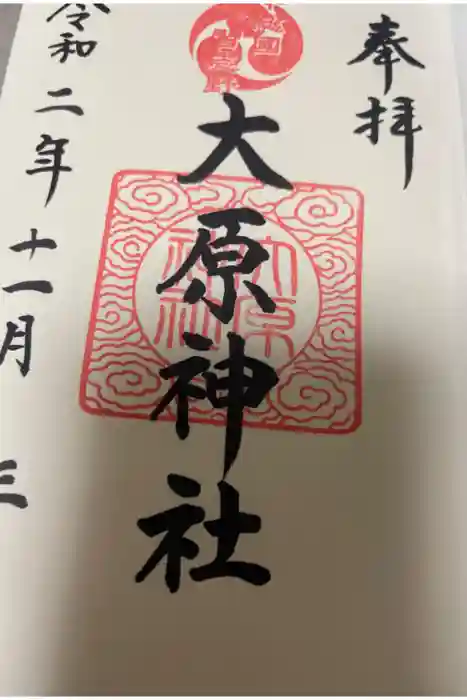 奉拝
大原神社
大原
神社
令和二年十一月三